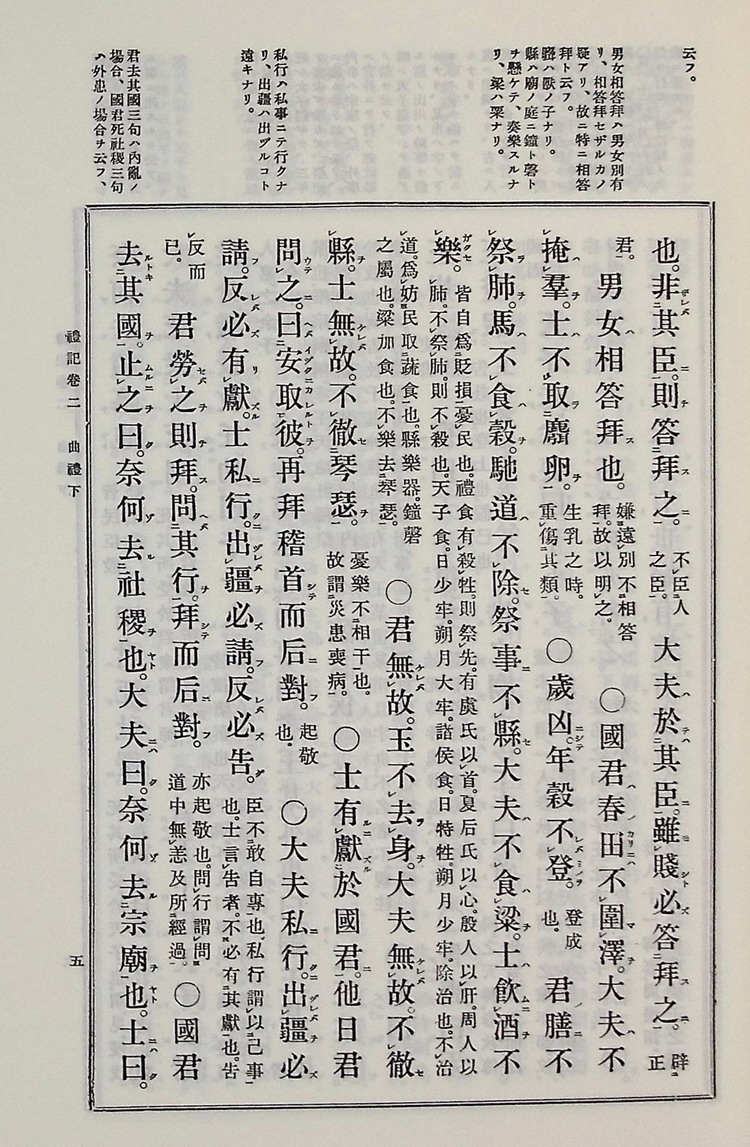 云フ。
男女相答拜ハ男女別有
リ、相答拜セザルカノ
疑アリ、故ニ特ニ相答
拜ト云フ。
麛ハ獸ノ子ナリ。
縣ハ廟ノ庭ニ鐘ト磬ト
ヲ懸ケテ、奏樂スルナ
リ、粱ハ粟ナリ。
私行ハ私事ニテ行クナ
リ、出疆ハ出ヅルコト
遠キナリ。
君去其國三句ハ內亂ノ
場合、國君死社稷三句
ハ外患ノ場合ヲ云フ、
也。非其臣。則答拜之。不臣人之臣。大夫於其臣。雖賤必答拜之。辟正
君。男女相答拜也。嫌遠別不相答拜。故以明之。○國君春田不圍澤。大夫不
掩羣。士不取麛卵。生乳之時。重傷其類。○歲凶。年穀不登。登成也。君膳不
祭肺。馬不食穀。馳道不除。祭事不縣。大夫不食粱。士飮酒不
樂。皆自爲貶損憂民也。禮食有殺牲。則祭先。有虞氏以首。夏后氏以心。殷人以肝。周人以肺。不祭肺。則不殺也。天子食。日少牢。朔月大牢。諸侯食。日特牲。朔月少牢。除治也。不治
道。爲妨民取蔬食也。縣樂器。鐘磬之屬也。粱加食也。不樂去琴瑟。○君無故。玉不去身。大夫無故。不徹
縣。士無故。不徹琴瑟。憂樂不相干也。故謂災患喪病。○士有獻於國君。他日君
問之。曰安取彼。再拜稽首而后對。起敬也。○大夫私行。出疆必
請。反必有獻。士私行。出疆必請。反必告。臣不敢自專也私行謂以己事也。士言告者。不必有其獻也。告
反而已。君勞之則拜。問其行。拜而后對。亦起敬也。問行謂問道中無恙及所經過。○國君
去其國。止之曰。奈何去社稷也。大夫曰。奈何去宗廟也。士曰。
禮記卷二　曲禮下　五